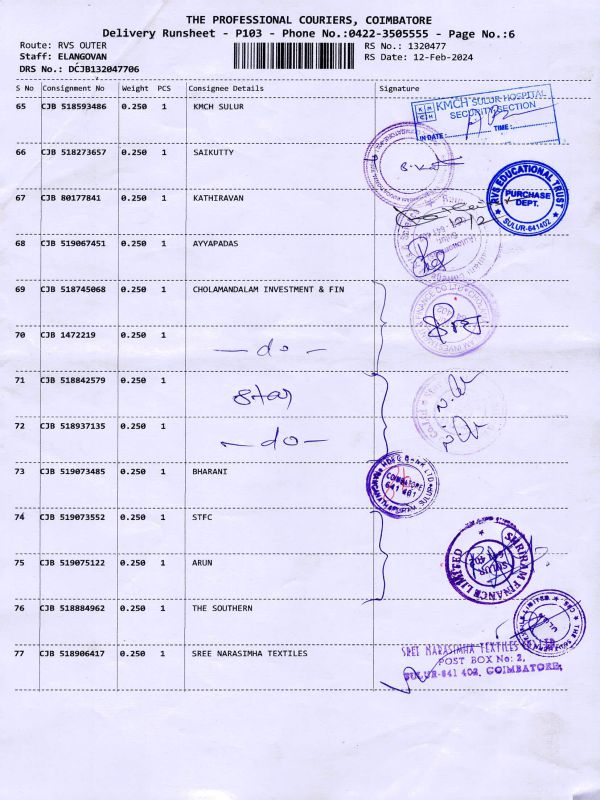 THE PROFESSIONAL COURIERS, COIMBATORE
Delivery Runsheet - P103 - Phone No.:0422-3505555 - Page No.:6
Route: RVS OUTER RS No.: 1320477
Staff: ELANGOVAN RS Date: 12-Feb-2024
DRS No.: DCJB132047706
S No Consignment No Weight PCS Consignee Details Signature
65 CJB 518593486 0.250 1 KMCH SULUR
KMCH SULUR HOSPITAL
SECURITY SECTION
IN DATE: TIME:
66 CJB 518273657 0.250 1 SAIKUTTY
67 CJB 80177841 0.250 1 KATHIRAVAN
12/2
RVS EDUCATIONAL TRUST
PURCHASE
DEPT.
SULUR-641402
68 CJB 519067451 0.250 1 AYYAPADAS
69 CJB 518745068 0.250 1 CHOLAMANDALAM INVESTMENT & FIN
70 CJB 1472219 0.250 1
—do—
71 CJB 518842579 0.250 1
Star
72 CJB 518937135 0.250 1
—do—
73 CJB 519073485 0.250 1 BHARANI
COIMBATORE
641 401
74 CJB 519073552 0.250 1 STFC
SHRIRAM FINANCE LIMITED
SULUR
75 CJB 519075122 0.250 1 ARUN
76 CJB 518884962 0.250 1 THE SOUTHERN
77 CJB 518906417 0.250 1 SREE NARASIMHA TEXTILES
SREE NARASIMHA TEXTILES
POST BOX No: 2,
SULUR-641 402, COIMBATORE.